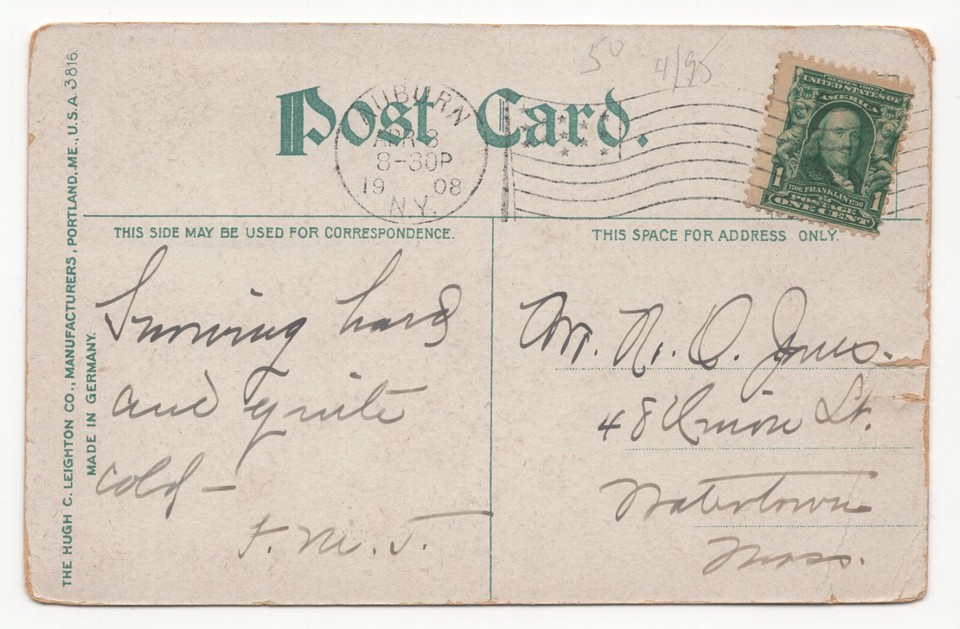 50 4/95
Post Card.
AUBURN
APR 8
8-30P
19 08
N.Y.
SERIES 1902
UNITED STATES OF
AMERICA
1706 FRANKLIN 1790
POSTAGE
1 1
ONE CENT
THIS SIDE MAY BE USED FOR CORRESPONDENCE.
THIS SPACE FOR ADDRESS ONLY.
Snowing hard
and quite
cold —
Mr. N. O. Jones.
48 Union St.
Watertown
Mass.
THE HUGH C. LEIGHTON CO., MANUFACTURERS, PORTLAND, ME., U.S.A. 3816.
MADE IN GERMANY.